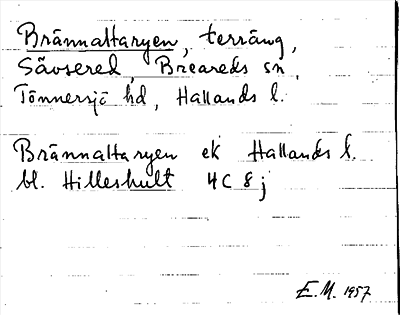 Brännaltaryen, terräng,
Sävsered, Breareds sn,
Tönnersjö hd, Hallands l.
Brännaltaryen ek Hallands l.
bl. Hilleshult 4C 8j
E.M. 1957